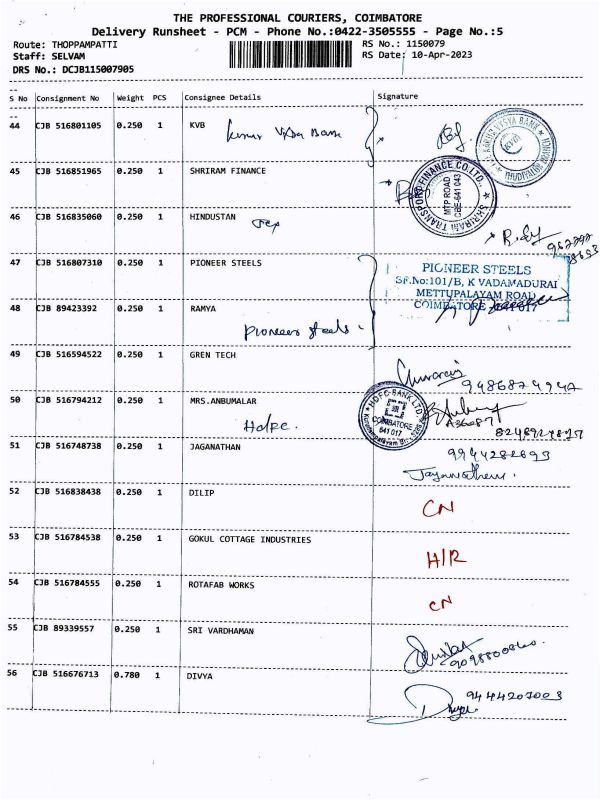 THE PROFESSIONAL COURIERS, COIMBATORE
Delivery Runsheet - PCM - Phone No.:0422-3505555 - Page No.:5
Route: THOPPAMPATTI RS No.: 1150079
Staff: SELVAM RS Date: 10-Apr-2023
DRS No.: DCJB115007905
S No Consignment No Weight PCS Consignee Details Signature
44 CJB 516801105 0.250 1 KVB
45 CJB 516851965 0.250 1 SHRIRAM FINANCE
SHRIRAM TRANSPORT FINANCE CO.LTD.,
MTP ROAD
CBE-641 043
46 CJB 516835060 0.250 1 HINDUSTAN
47 CJB 516807310 0.250 1 PIONEER STEELS
PIONEER STEELS
SF.No:101/B, K VADAMADURAI
METTUPALAYAM ROAD
COIMBATORE - 641 017
48 CJB 89423392 0.250 1 RAMYA
Pioneer steels
49 CJB 516594522 0.250 1 GREN TECH
9486874947
50 CJB 516794212 0.250 1 MRS.ANBUMALAR
Hdfc.
HDFC BANK LTD
COIMBATORE
641 017
51 CJB 516748738 0.250 1 JAGANATHAN
9944282693
52 CJB 516838438 0.250 1 DILIP
CN
53 CJB 516784538 0.250 1 GOKUL COTTAGE INDUSTRIES
H/R
54 CJB 516784555 0.250 1 ROTAFAB WORKS
CN
55 CJB 89339557 0.250 1 SRI VARDHAMAN
56 CJB 516676713 0.780 1 DIVYA
9444207003